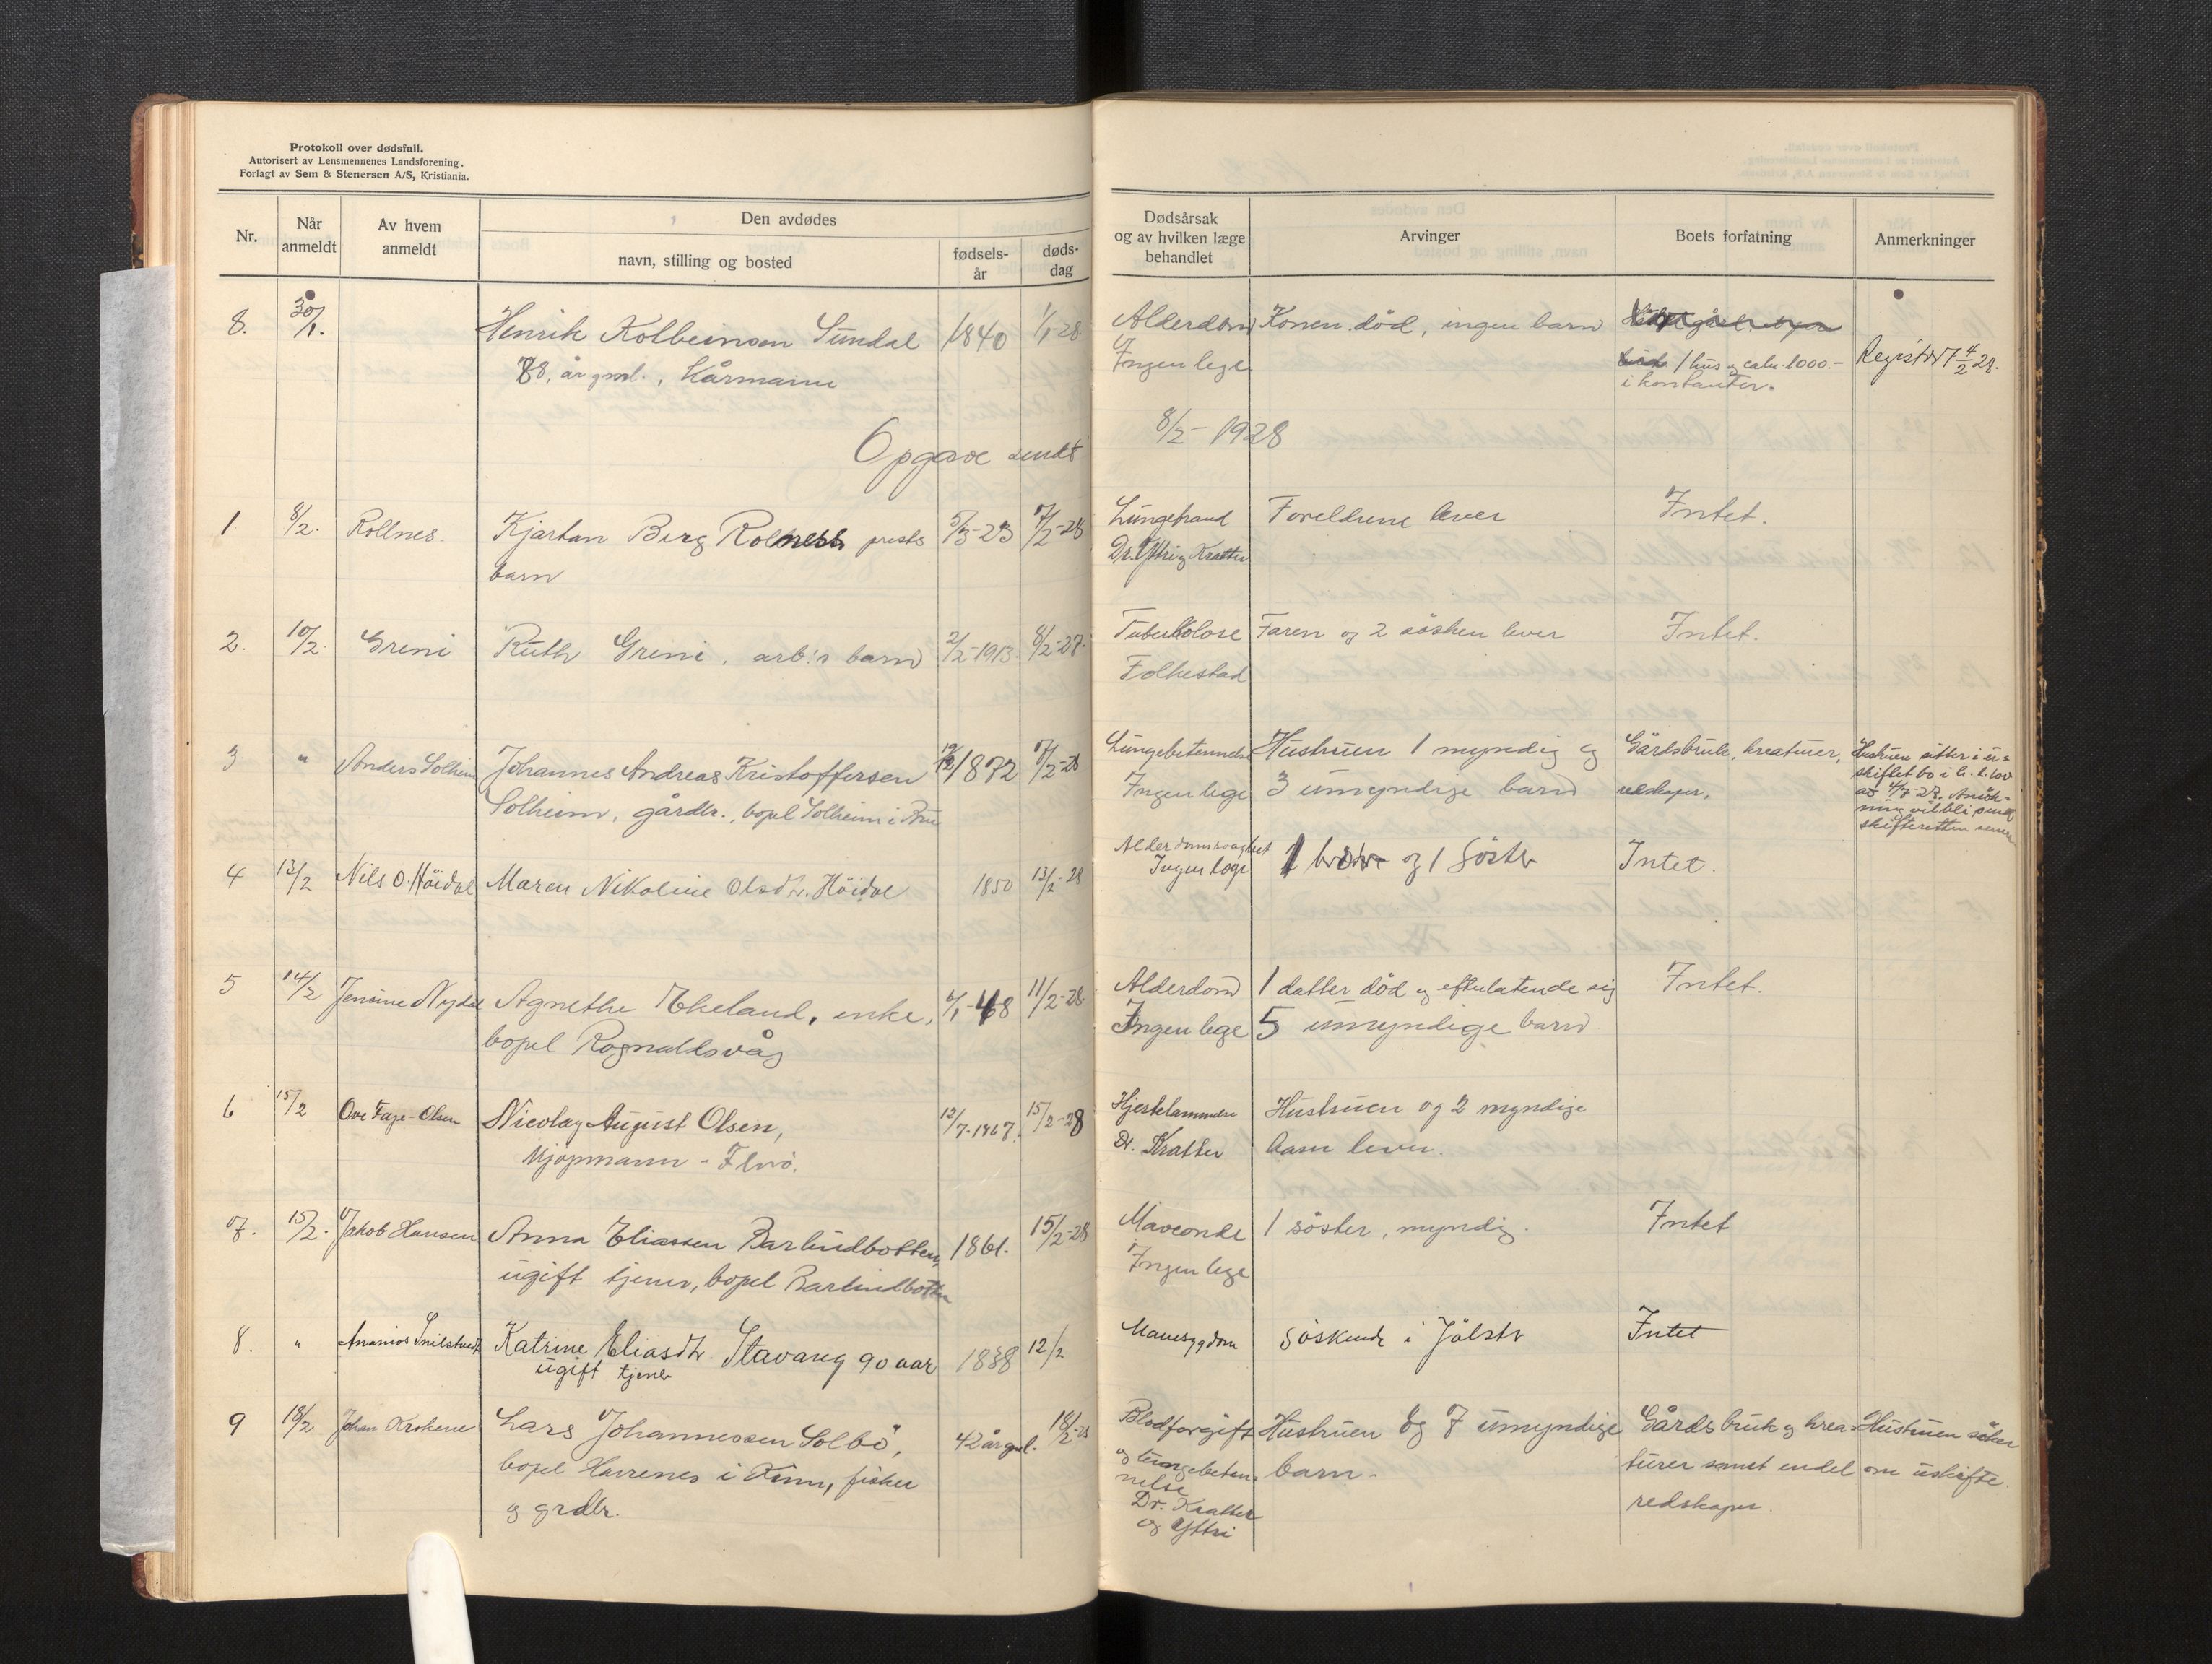 Protokoll over dødsfall.
Autorisert av Lensmennenes Landsforening.
Forlagt av Sem & Stenersen A/S, Kristiania.
Nr.
Når anmeldt
Av hvem anmeldt
Den avdødes
navn, stilling og bosted
fødsels-
år
døds-
dag
Dødsårsak
og av hvilken læge
behandlet
Arvinger
Boets forfatning
Anmerkninger
8. 30/1. Henrik Kolbeinsen Sundal 1840 1/1-28 Alderdom Konen død, ingen barn
88, år gml., Kårmann Ingen lege 1 hus og calv. 1000.- Registr 4/2 28.
i kontanter.
Opgave sendt 8/2- 1928
1 8/2. Rollnes. Kjartan Berg Rolness prests 5/3-23 7/2-28 Lungebrand Foreldrene lever Intet.
barn Dr. Yttri og Kratter
2. 10/2. Greni Ruth Greni, arb:s barn 2/2-1913 8/2-27. Tuberkolose Faren og 2 søsken lever Intet.
Folkestad
3 " Anders Solheim Johannes Andreas Kristoffersen 1872 7/2-28 Lungebetennelse Hustruen 1 myndig og Gårdsbruk, kreaturer, Hustruen sitter i u=
Solheim, gårdbr., bopel Solheim i Bru Ingen lege 3 umyndige barn redskaper. skiftet bo i h. t. lov
av 4/7-27. Ansøk-
ning vil bli sendt
skifteretten senere
4 13/2 Nils O. Höidal Maren Nikoline Olsdtr. Höidal 1850 13/2-28 Alderdomssvaghet 1 bror og 1 söster Intet.
Ingen læge
5 14/2 Jensine Nydal Agnethe Ekeland, enke, 6/1-48 11/2-28 Alderdom 1 datter død og efterlatende sig Intet.
bopel Rognaldsvåg Ingen lege 5 umyndige barn
6 15/2 Ove Fage-Olsen Nicolay August Olsen, 12/7-1867. 15/2-28 Hjertelammelse Hustruen og 2 myndige
Kjøpmann - Florö. Dr. Kratter barn lever.
7. 15/2. Jakob Hansen Anna Eliassen Barlindbotten, 1861. 15/2-28 Maveonde 1 søster, myndig. Intet
ugift tjener, bopel Barlindbotten Ingen lege
8. " Ananias Snilstvedt Katrine Eliasdtr. Stavang 90 aar 1838 12/2 Mavesygdom söskende i Jölster Intet
ugift tjener
9 18/2 Johan Krokene Lars Johannessen Solbö, 42 år gml. 18/2-28 Blodforgift Hustruen og 7 umyndige Gårdsbruk og krea- Hustruen søker
bopel Harrenes i Kinn, fisker og lungebeten- barn. turer samt endel om uskifte.
og grdbr. nelse redskaper.
Dr. Kratter
og Yttri